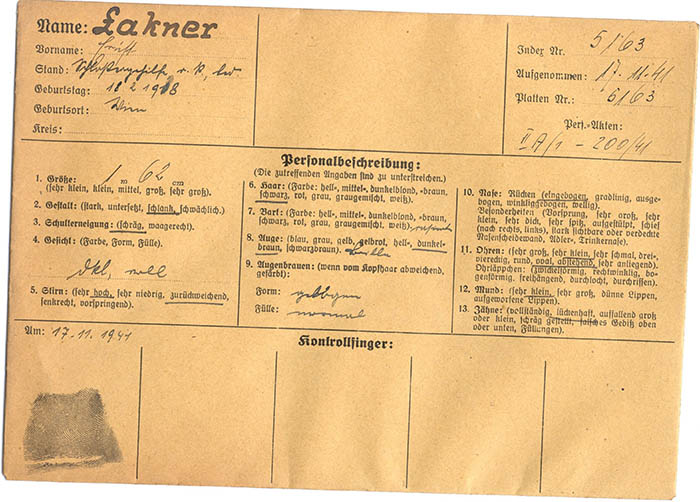 Name: Lakner
Vorname:
Stand: Schlossergehilfe, r. k., led.
Geburtstag: 18 2 1918
Geburtsort: Wien
Kreis:
Index Nr. 5163
Aufgenommen: 17·11·41
Platten Nr.: 6163
Pers.-Akten:
II A/1 - 200/41
Personalbeschreibung:
(Die zutreffenden Angaben sind zu unterstreichen.)
1. Größe: 1 m 62 cm
(sehr klein, klein, mittel, groß, sehr groß).
2. Gestalt: (stark, untersetzt, schlank, schwächlich.)
3. Schulterneigung: (schräg, waagerecht).
4. Gesicht: (Farbe, Form, Fülle).
dkl, voll
5. Stirn: (sehr hoch, sehr niedrig, zurückweichend,
senkrecht, vorspringend).
6. Haar: (Farbe: hell-, mittel-, dunkelblond, -braun,
schwarz, rot, grau, graugemischt, weiß).
7. Bart: (Farbe: hell-, mittel-, dunkelblond, -braun,
schwarz, rot, grau, graugemischt, weiß).
8. Auge: (blau, grau, gelb, gelbrot, hell-, dunkel-
braun, schwarzbraun).
9. Augenbrauen: (wenn vom Kopfhaar abweichend,
gefärbt):
Form: gebogen
Fülle: normal
10. Nase: Rücken (eingebogen, gradlinig, ausge-
bogen, winkliggebogen, wellig).
Besonderheiten (Vorsprung, sehr groß, sehr
klein, sehr dick, sehr spitz, aufgestülpt, schief
(nach rechts, links), stark sichtbare oder verdeckte
Nasenscheidewand, Adler-, Trinkernase).
11. Ohren: (sehr groß, sehr klein, sehr schmal, drei-
viereckig, rund, oval, abstehend, sehr anliegend).
Ohrläppchen: (zwickelförmig, rechtwinklig, bo-
genförmig, freihängend, durchlocht, durchrissen).
12. Mund: (sehr klein, sehr groß, dünne Lippen,
aufgeworfene Lippen).
13. Zähne: (vollständig, lückenhaft, auffallend groß
oder klein, schräg gestellt, falsches Gebiß oben
oder unten, Füllungen).
Am: 17·11·1941
Kontrollfinger: